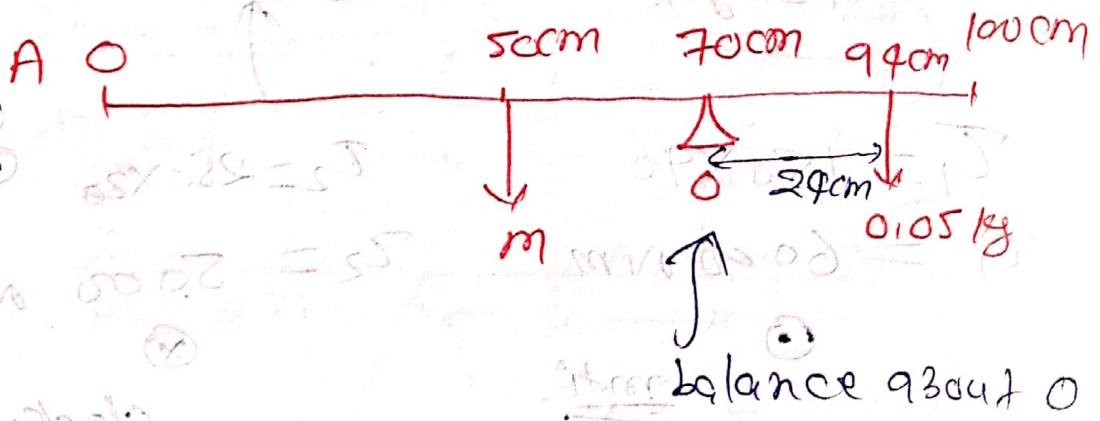 A 0 50cm 70cm 94cm 100cm
0 24cm
m 0.05 kg
balance about 0